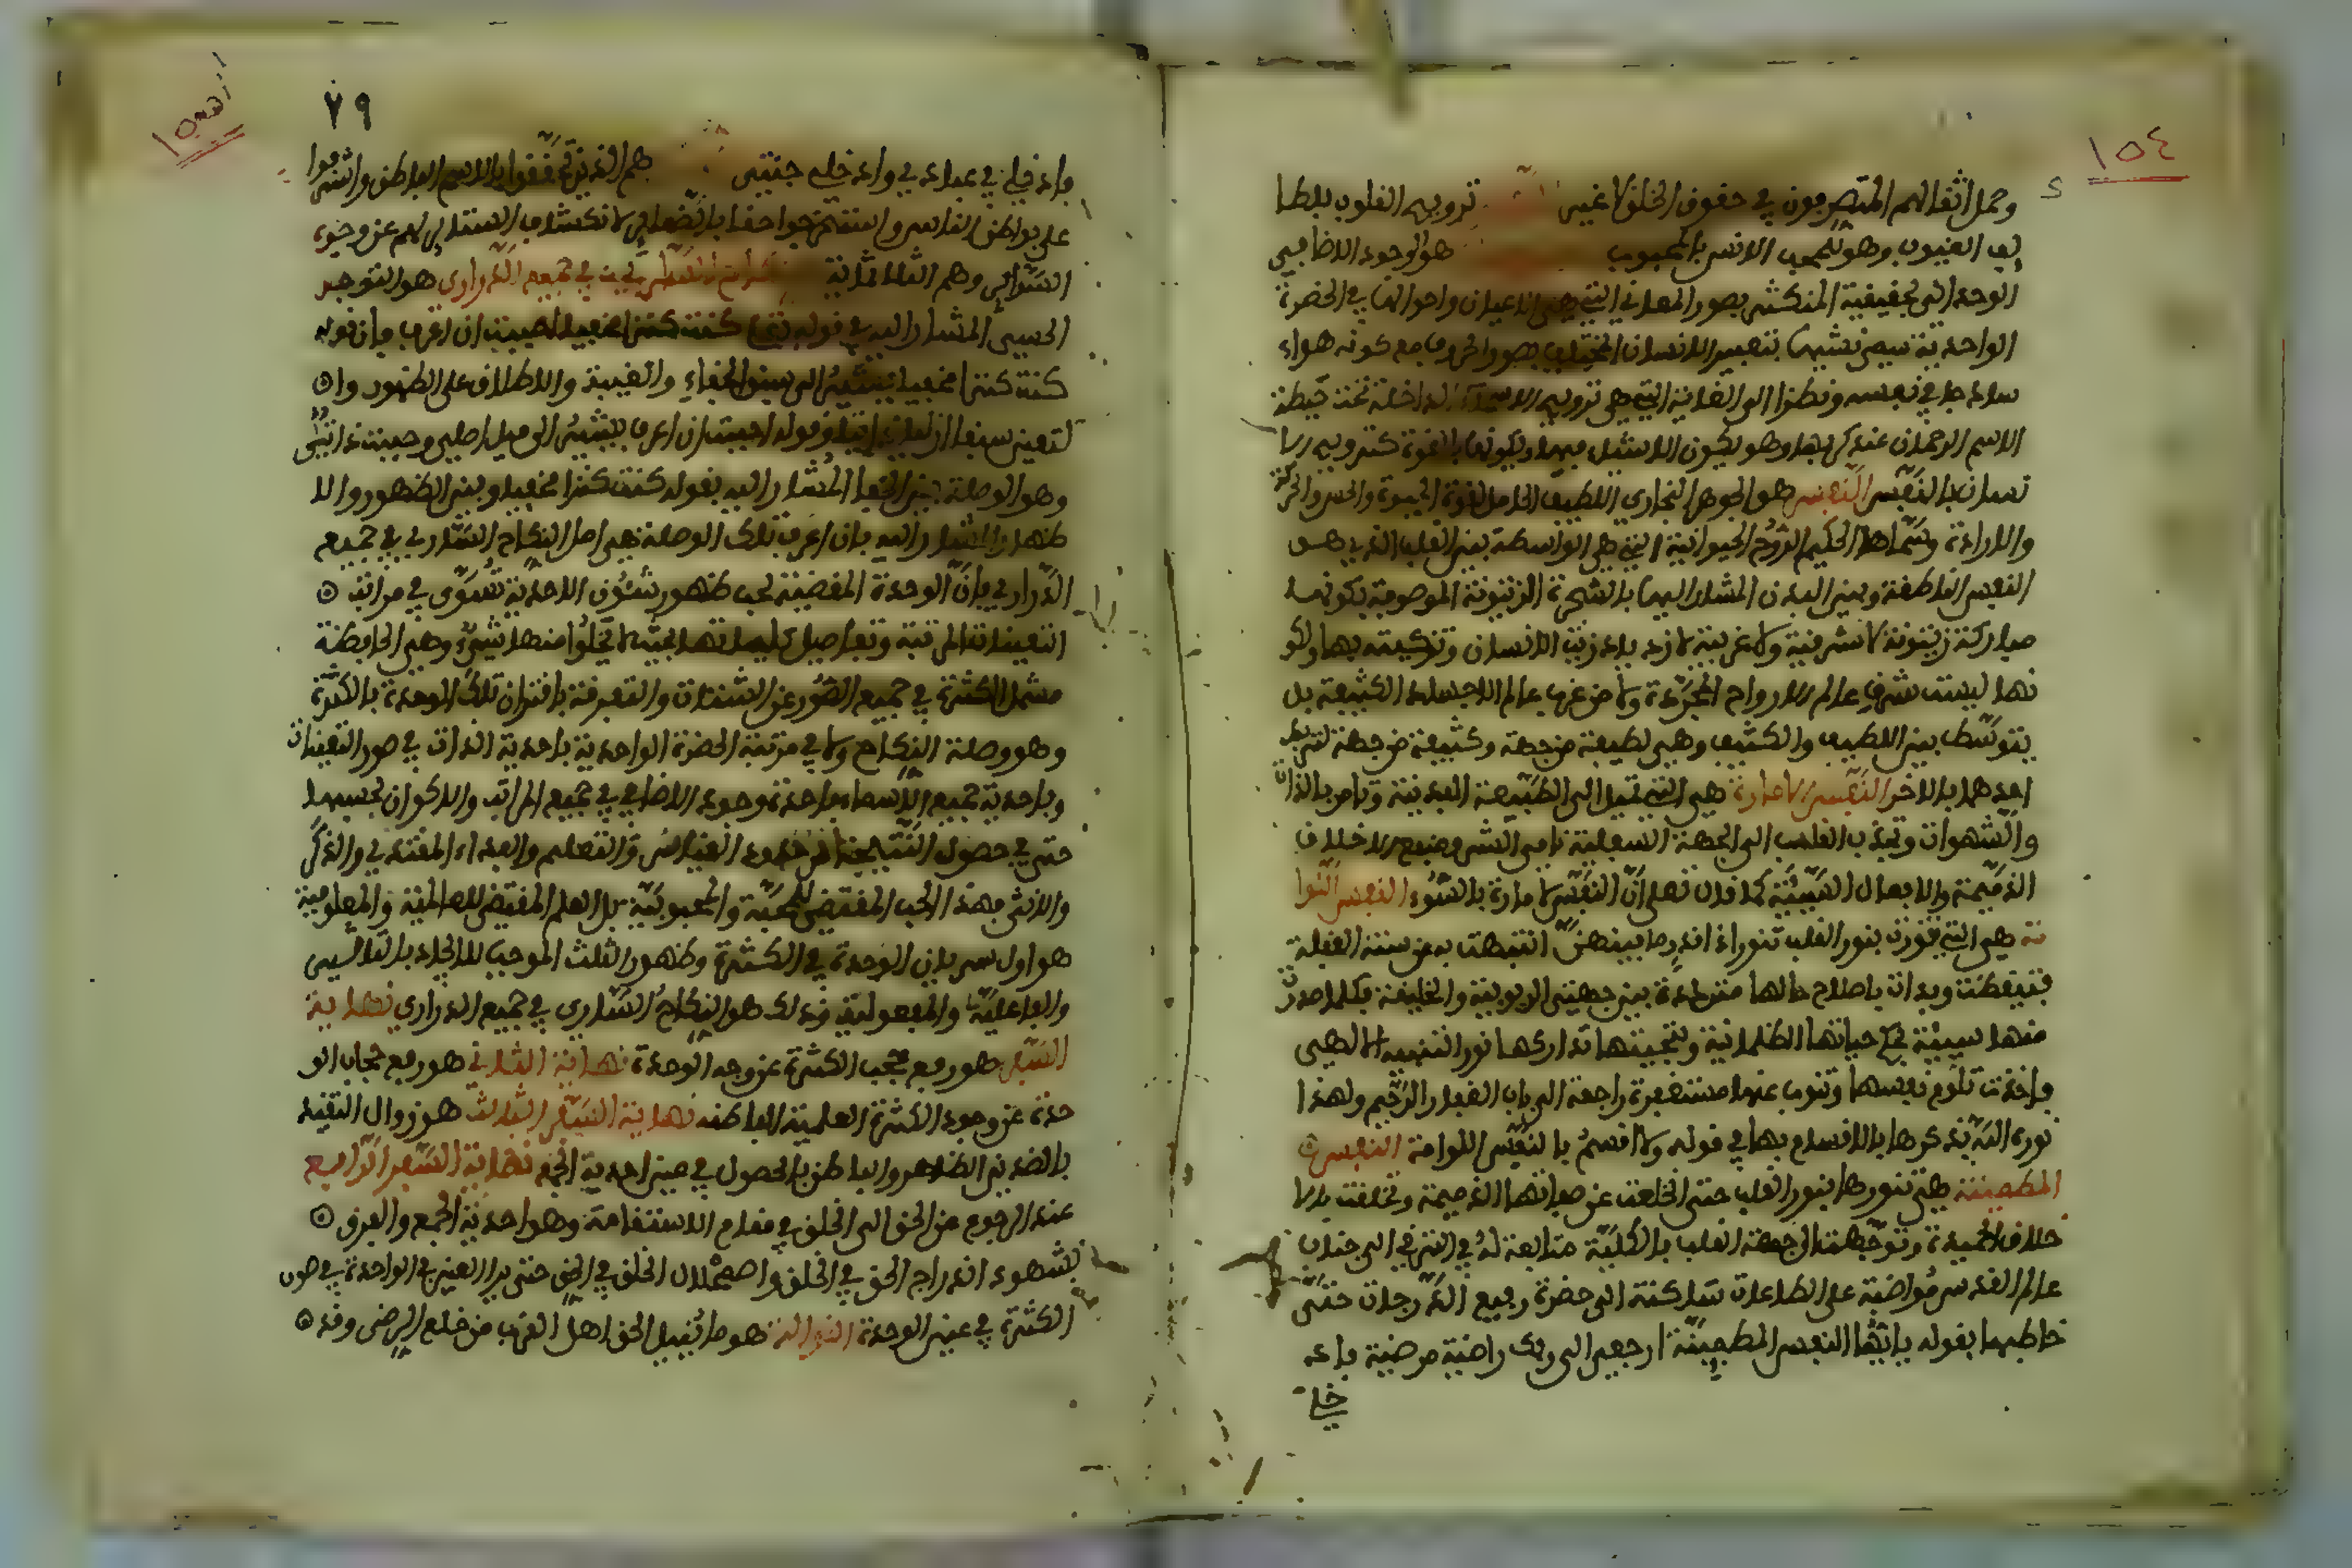 ١٥٤
وحمل اثقالهم المتصرفون في حقوق الخلق لا غير ترويح القلوب بلطا
يف الغيوب وهو للمحب الانس بالمحبوب هو الوجود الاضافي
الوحداني بحقيقته المتكثر بصور المعاني التي هي الاعيان واحوالها في الحضرة
الواحدية سمي تشبيها بنفس الانسان المختلف بصور الحروف مع كونه هواء
ساذجا في نفسه ونظرا الى الغاية التي هي ترويح الاسماء الداخلة تحت حيطة
الاسم الرحمان عند كربها وهو كون الاشياء فيها وكونها بالقوة كترويح الا
نسان بالنفس النفس هو الجوهر البخاري اللطيف الحامل لقوة الحيوة والحس والحركة
والارادة وسماها الحكيم الروح الحيوانية التي هي الواسطة بين القلب الذي هو
النفس الناطقة وبين البدن المشار اليها بالشجرة الزيتونة الموصوفة بكونها
مباركة زيتونة لا شرقية ولا غربية لازدياد زيت الانسان وتزكيته بها ولكو
نها ليست شرق عالم الارواح المجردة ولا من غرب عالم الاجساد الكثيفة بل
بتوسط بين اللطيف والكثيف وهي لطيفة من جهة وكثيفة من جهة لتربط
احدهما بالاخر النفس الامارة هي التي تميل الى الطبيعة البدنية وتامر باللذات
والشهوات وتجذب القلب الى الجهة السفلية فهي الشر ومنبع الاخلاق
الذميمة والافعال السيئة كما قال تعلى ان النفس لامارة بالسوء النفس اللوا
مة هي التي تنورت بنور القلب تنورا قدر ما تنبهت به من سنة الغفلة
فتيقظت وبدات باصلاح حالها مترددة بين جهتي الربوبية والخليقة فكلما صدرت
منها سيئة بحكم جبلتها الظلمانية وسجيتها تداركها نور التنبيه الالهي
فاخذت تلوم نفسها وتتوب عنها مستغفرة راجعة الى باب الغفار الرحيم ولهذا
نوه الله بذكرها بالاقسام بها في قوله ولا اقسم بالنفس اللوامة النفس
المطمئنة هي تنورها بنور القلب حتى انخلعت عن صفاتها الذميمة وتخلقت بالا
خلاق الحميدة وتوجهت الى جهة القلب بالكلية متابعة له في الترقي الى جناب
عالم القدس مواضبة على الطاعات ساكنة الى حضرة رفيع الدرجات حتى
خاطبها بقوله يايتها النفس المطمئنة ارجعي الى ربك راضية مرضية فاد
خلي
٧٩
فادخلي في عبادي وادخلي جنتي هم الذين تحققوا بالاسم الباطن واشرفوا
على بواطن الناس واستخرجوا خفايا الضمائر لانكشاف الستائر لهم عن وجوه
السرائر وهم الثلاثمائة النكاح الساري في جميع الذراري هو التوجه
الحبي المشار اليه في قوله كنت كنزا مخفيا احببت ان اعرف فان قوله
كنت كنزا مخفيا يشير الى سبق الخفاء والغيبة والاطلاق على الظهور وا
لتعين سبقا ازليا ذاتيا وقوله احببت ان اعرف يشير الى ميل اصلي وحب ذاتي
وهو الوصلة بين الخفا المشار اليه بقوله كنت كنزا مخفيا وبين الظهور والا
ظهار المشار اليه بان اعرف تلك الوصلة هي اصل النكاح الساري في جميع
الذراري فان الوحدة المقتضية لحب ظهور شئون الاحدية تسري في مراتب
التعينات المرتبة وتفاصيل كلياتها بحيث لا يخلوا منها شيء وهي الحافظة
شمل الكثرة في جميع الصور عن الشتات والتفرقة باقتران تلك الوحدة بالكثرة
وهو وصلة النكاح ولا في مرتبة الحضرة الواحدية باحدية الذات في صور التعينات
وباحدية جميع الاسماء واحدة وجود الاضافي في جميع المراتب والاكوان بحسبها
حتى في حصول النتيجة من حدود القياس والتعليم والغذاء المغتذي والذكر
والانثى فهذا الحب المقتضي للمحبة والمحبوبية بل العلم المقتضي للعالمية والمعلومية
هو اول سريان الوحدة في الكثرة وظهور الثلث الموجب للايجاد بالتاثير
والفاعلية والمفعولية وذلك هو النكاح الساري في جميع الذراري نهاية
السفر هو رفع حجب الكثرة عن وجه الوحدة نهاية الثاني هو رفع حجاب الو
حدة عن وجوه الكثرة العلمية الباطنه نهاية السفر الثالث هو زوال التقيد
بالضدين الظاهر والباطن بالحصول في عين احدية الجمع نهاية السفر الرابع
عند الرجوع من الحق الى الخلق في مقام الاستقامة وهو احدية الجمع والفرق
بشهود اندراج الحق في الخلق واضمحلال الخلق في الحق حتى يرا العين في الواحدة في صور
الكثرة في عين الوحدة النوالة هو ما ينيل الحق اهل القرب من خلع الرضى وقد